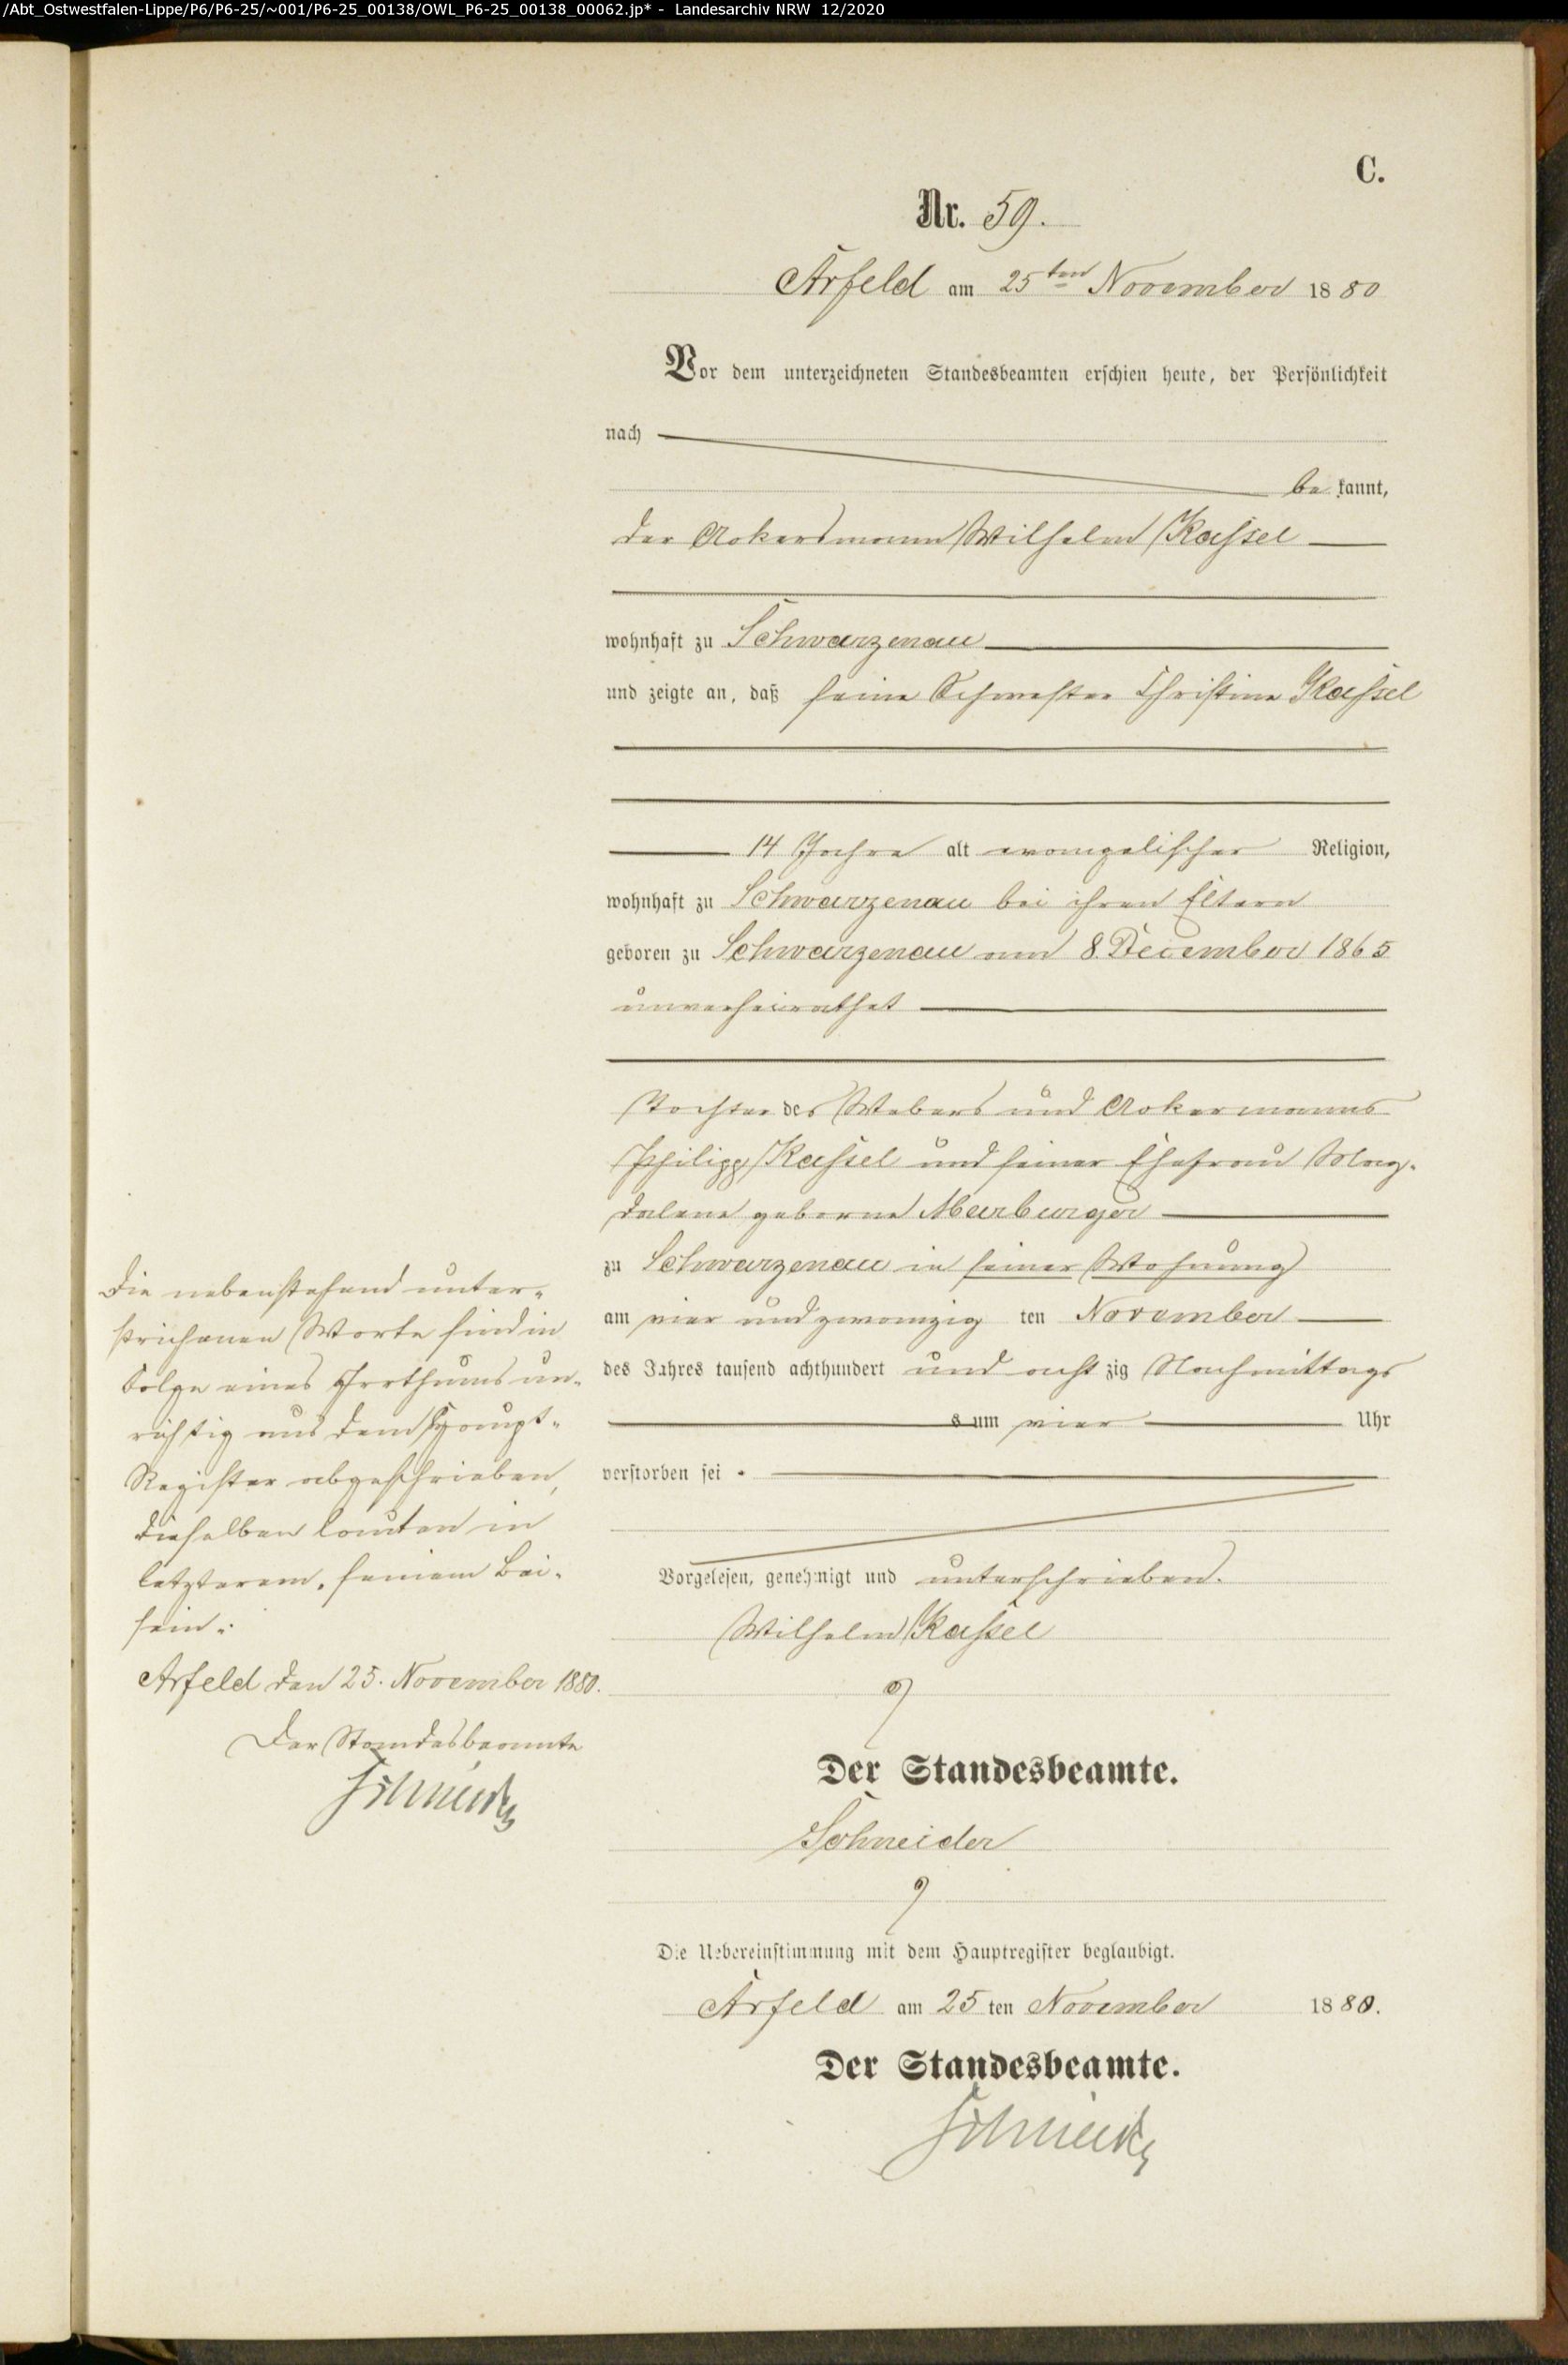 /Abt_Ostwestfalen-Lippe/P6/P6-25/~001/P6-25_00138/OWL_P6-25_00138_00062.jp* - Landesarchiv NRW 12/2020
C.
Nr. 59.
Arfeld am 25ten November 1880
Vor dem unterzeichneten Standesbeamten erschien heute, der Persönlichkeit
nach
be kannt,
der Ackersmann Wilhelm Kassel
wohnhaft zu Schwarzenau
und zeigte an, daß seine Schwester Christine Kassel
14 Jahre alt evangelischer Religion,
wohnhaft zu Schwarzenau bei ihren Eltern
geboren zu Schwarzenau am 8. December 1865
unverheirathet
Tochter des Webers und Ackermanns
Philipp Kassel und seiner Ehefrau Mag-
dalene geborne Marburger
zu Schwarzenau in seiner Wohnung
am vier und zwanzig ten November
des Jahres tausend achthundert und acht zig Nachmittags
s um vier Uhr
verstorben sei.
Vorgelesen, genehmigt und unterschrieben.
Wilhelm Kassel
Der Standesbeamte.
Schneider
Die Uebereinstimmung mit dem Hauptregister beglaubigt.
Arfeld am 25 ten November 1880.
Der Standesbeamte.
Schneider
Die nebenstehend unter-
strichenen Worte sind in
Folge eines Irrthums un-
richtig aus dem Haupt-
Register abgeschrieben,
dieselben lauten in
letzterem, seinem Bei-
sein.
Arfeld den 25. November 1880.
Der Standesbeamte
Schneider